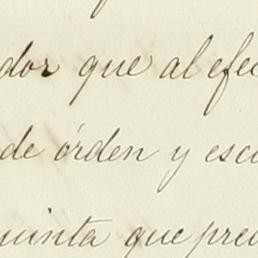 dor que al efec
de órden y esc
uinta que prec